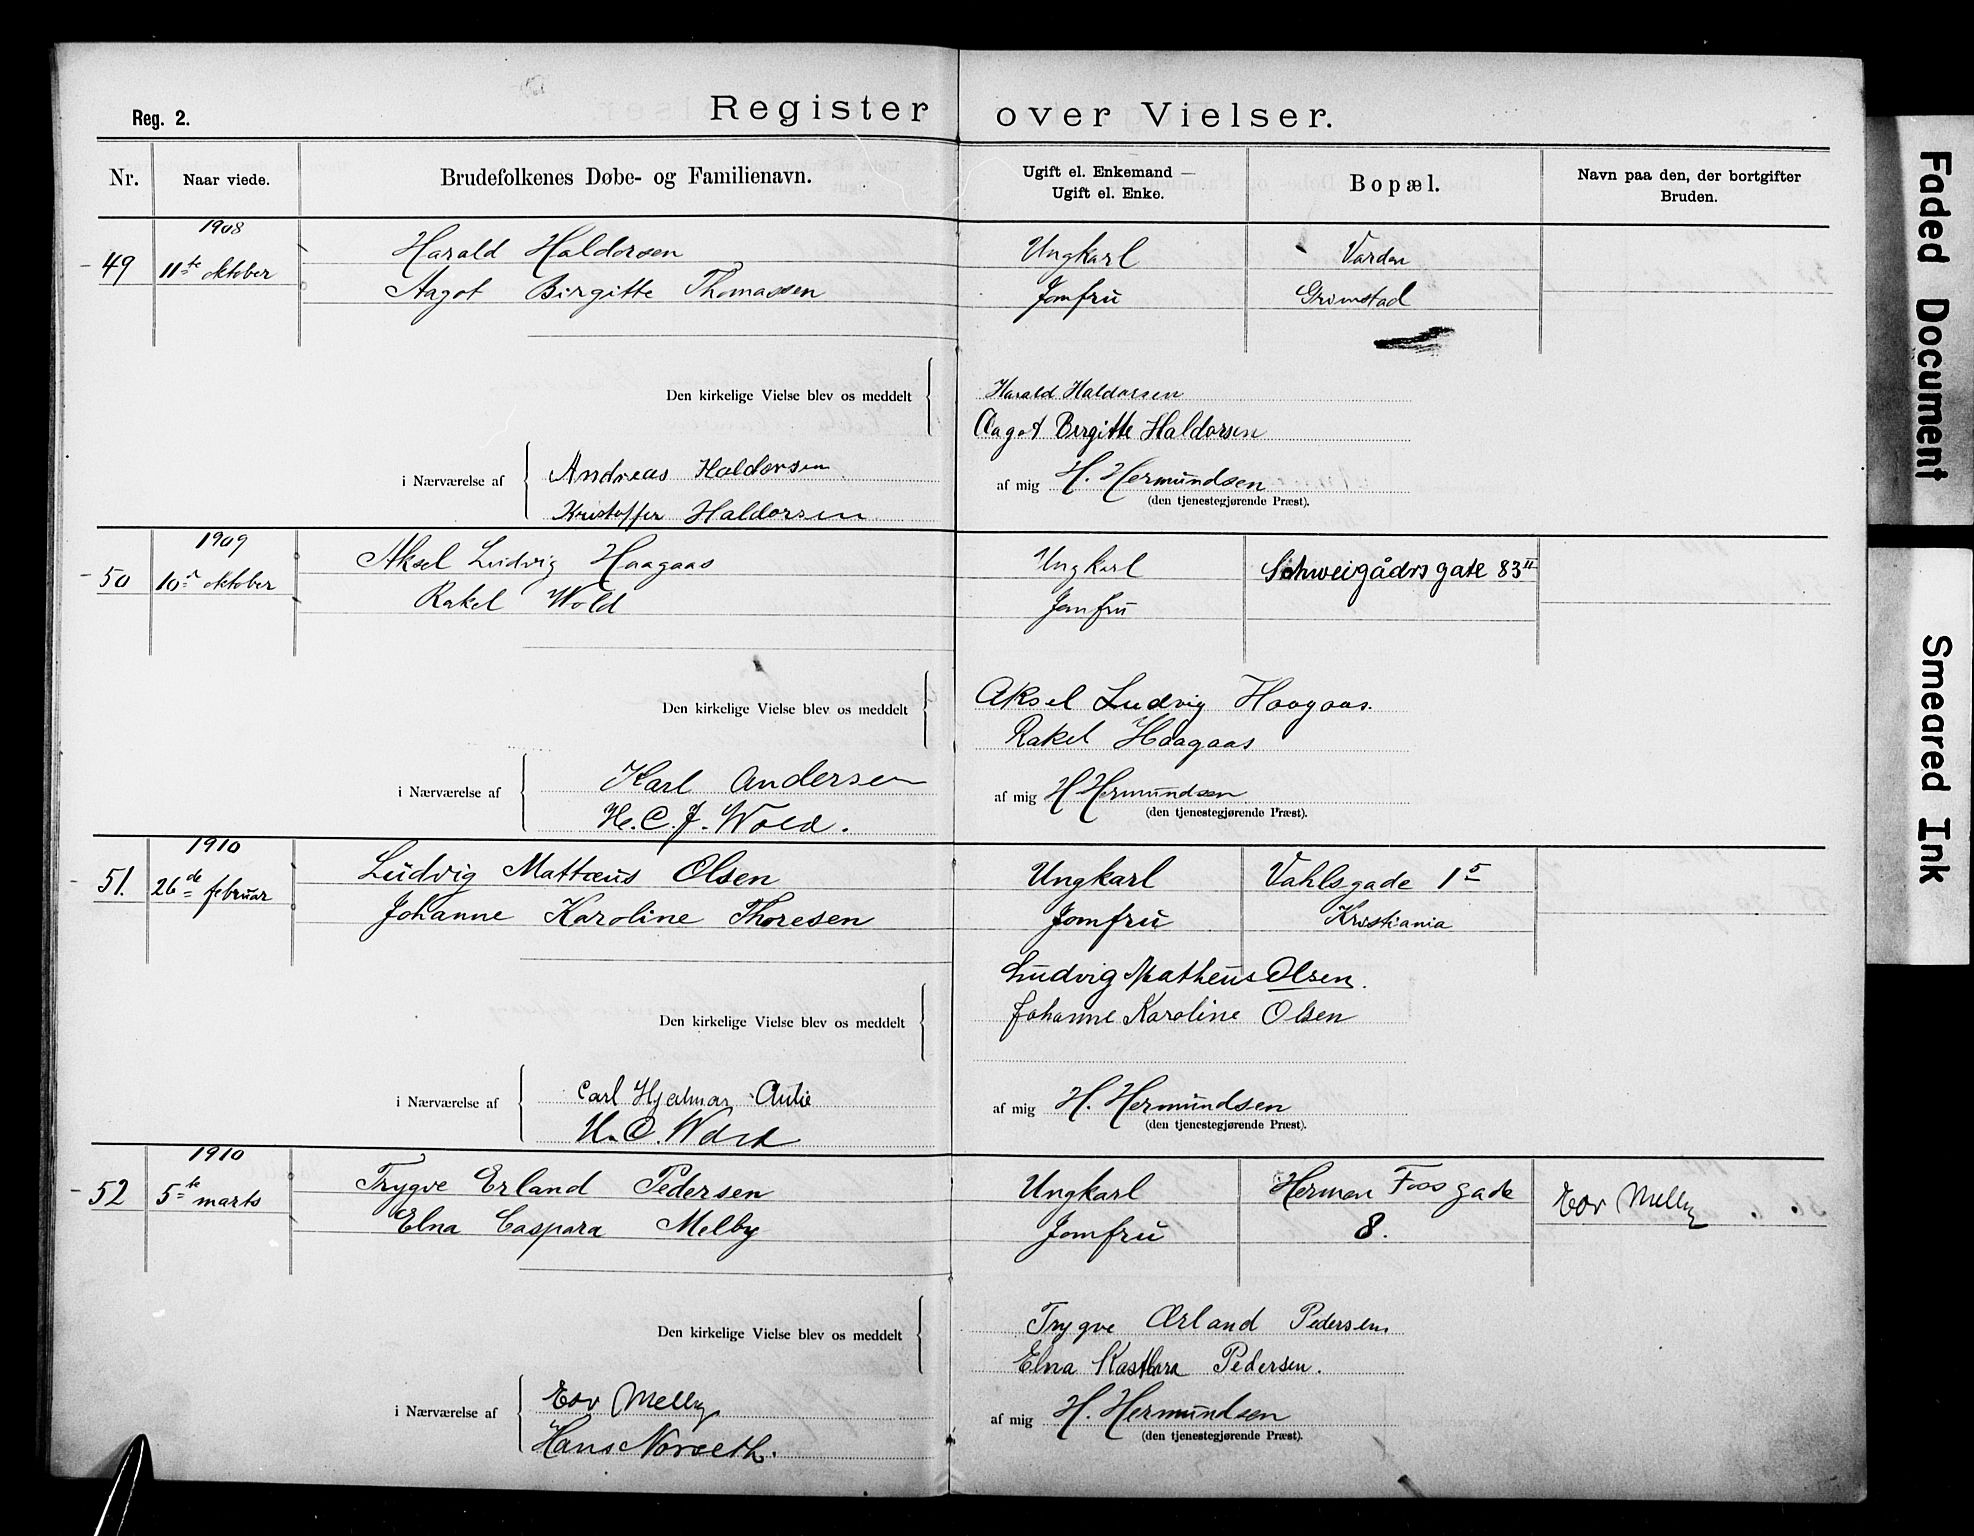 Reg. 2.
Register over Vielser.
Nr. Naar viede. Brudefolkenes Døbe- og Familienavn. Ugift el. Enkemand — Bopæl. Navn paa den, der bortgifter
Ugift el. Enke. Bruden.
1908
49 11te oktober Harald Haldorsen Ungkarl Varden
Aagot Birgitte Thomassen Jomfru Grimstad
Den kirkelige Vielse blev os meddelt Harald Haldorsen
Aagot Birgitte Haldorsen
i Nærværelse af Andreas Haldorsen af mig H. Hermundsen
(den tjenestegjørende Præst).
Kristoffer Haldorsen
1909
50 10de oktober Aksel Ludvig Haagaas Ungkarl Schweigådrsgate 83 II
Rakel Wold Jomfru
Den kirkelige Vielse blev os meddelt Aksel Ludvig Haagaas.
Rakel Haagaas
i Nærværelse af Karl Andersen af mig H Hermundsen
(den tjenestegjørende Præst).
H. C. J. Wold.
1910
51. 26de februar Ludvig Mattæus Olsen Ungkarl Vahlsgade 15
Johanne Karoline Thoresen Jomfru Kristiania
Ludvig Matheus Olsen.
Den kirkelige Vielse blev os meddelt Johanne Karoline Olsen
i Nærværelse af Carl Hjalmar Aulie af mig H. Hermundsen
(den tjenestegjørende Præst).
H. C. Wold
1910
52 5te marts Trygve Erland Pedersen Ungkarl Herman Foss gade
Elna Caspara Melby Jomfru 8. Melby
Den kirkelige Vielse blev os meddelt Trygve Ærland Pedersen
Elna Kastbara Pedersen.
i Nærværelse af Melby af mig H. Hermundsen
(den tjenestegjørende Præst).
Hans Norseth.
Faded Document
Smeared Ink